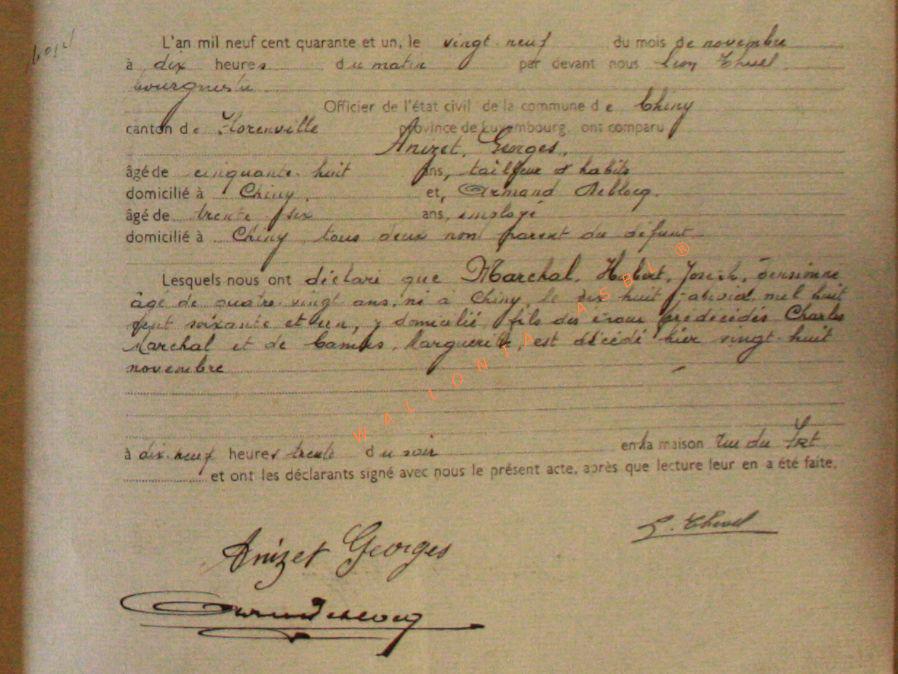 L'an mil neuf cent quarante et un, le vingt neuf du mois de novembre
à dix heures du matin par devant nous Léon Thuel
bourgmestre
Officier de l'état civil de la commune de Chiny
canton de Florenville province de Luxembourg, ont comparu
Anizet, Georges,
âgé de cinquante huit ans, tailleur d'habits
domicilié à Chiny, et, Armand Deblocq,
âgé de trente six ans, employé
domicilié à Chiny, tous deux non parent du défunt
Lesquels nous ont déclaré que Marchal, Hubert, Joseph, pensionné
âgé de quatre-vingt ans, né à Chiny, le dix huit mil huit
cent soixante et un, y domicilié, fils des époux prédécédés Charles
Marchal et de Camus, Marguerite, est décédé hier vingt huit
novembre
à dix-neuf heures trente du soir en la maison rue du
et ont les déclarants signé avec nous le présent acte, après que lecture leur en a été faite.
L. Thuel
Anizet Georges
WALLONIA ASBL ®